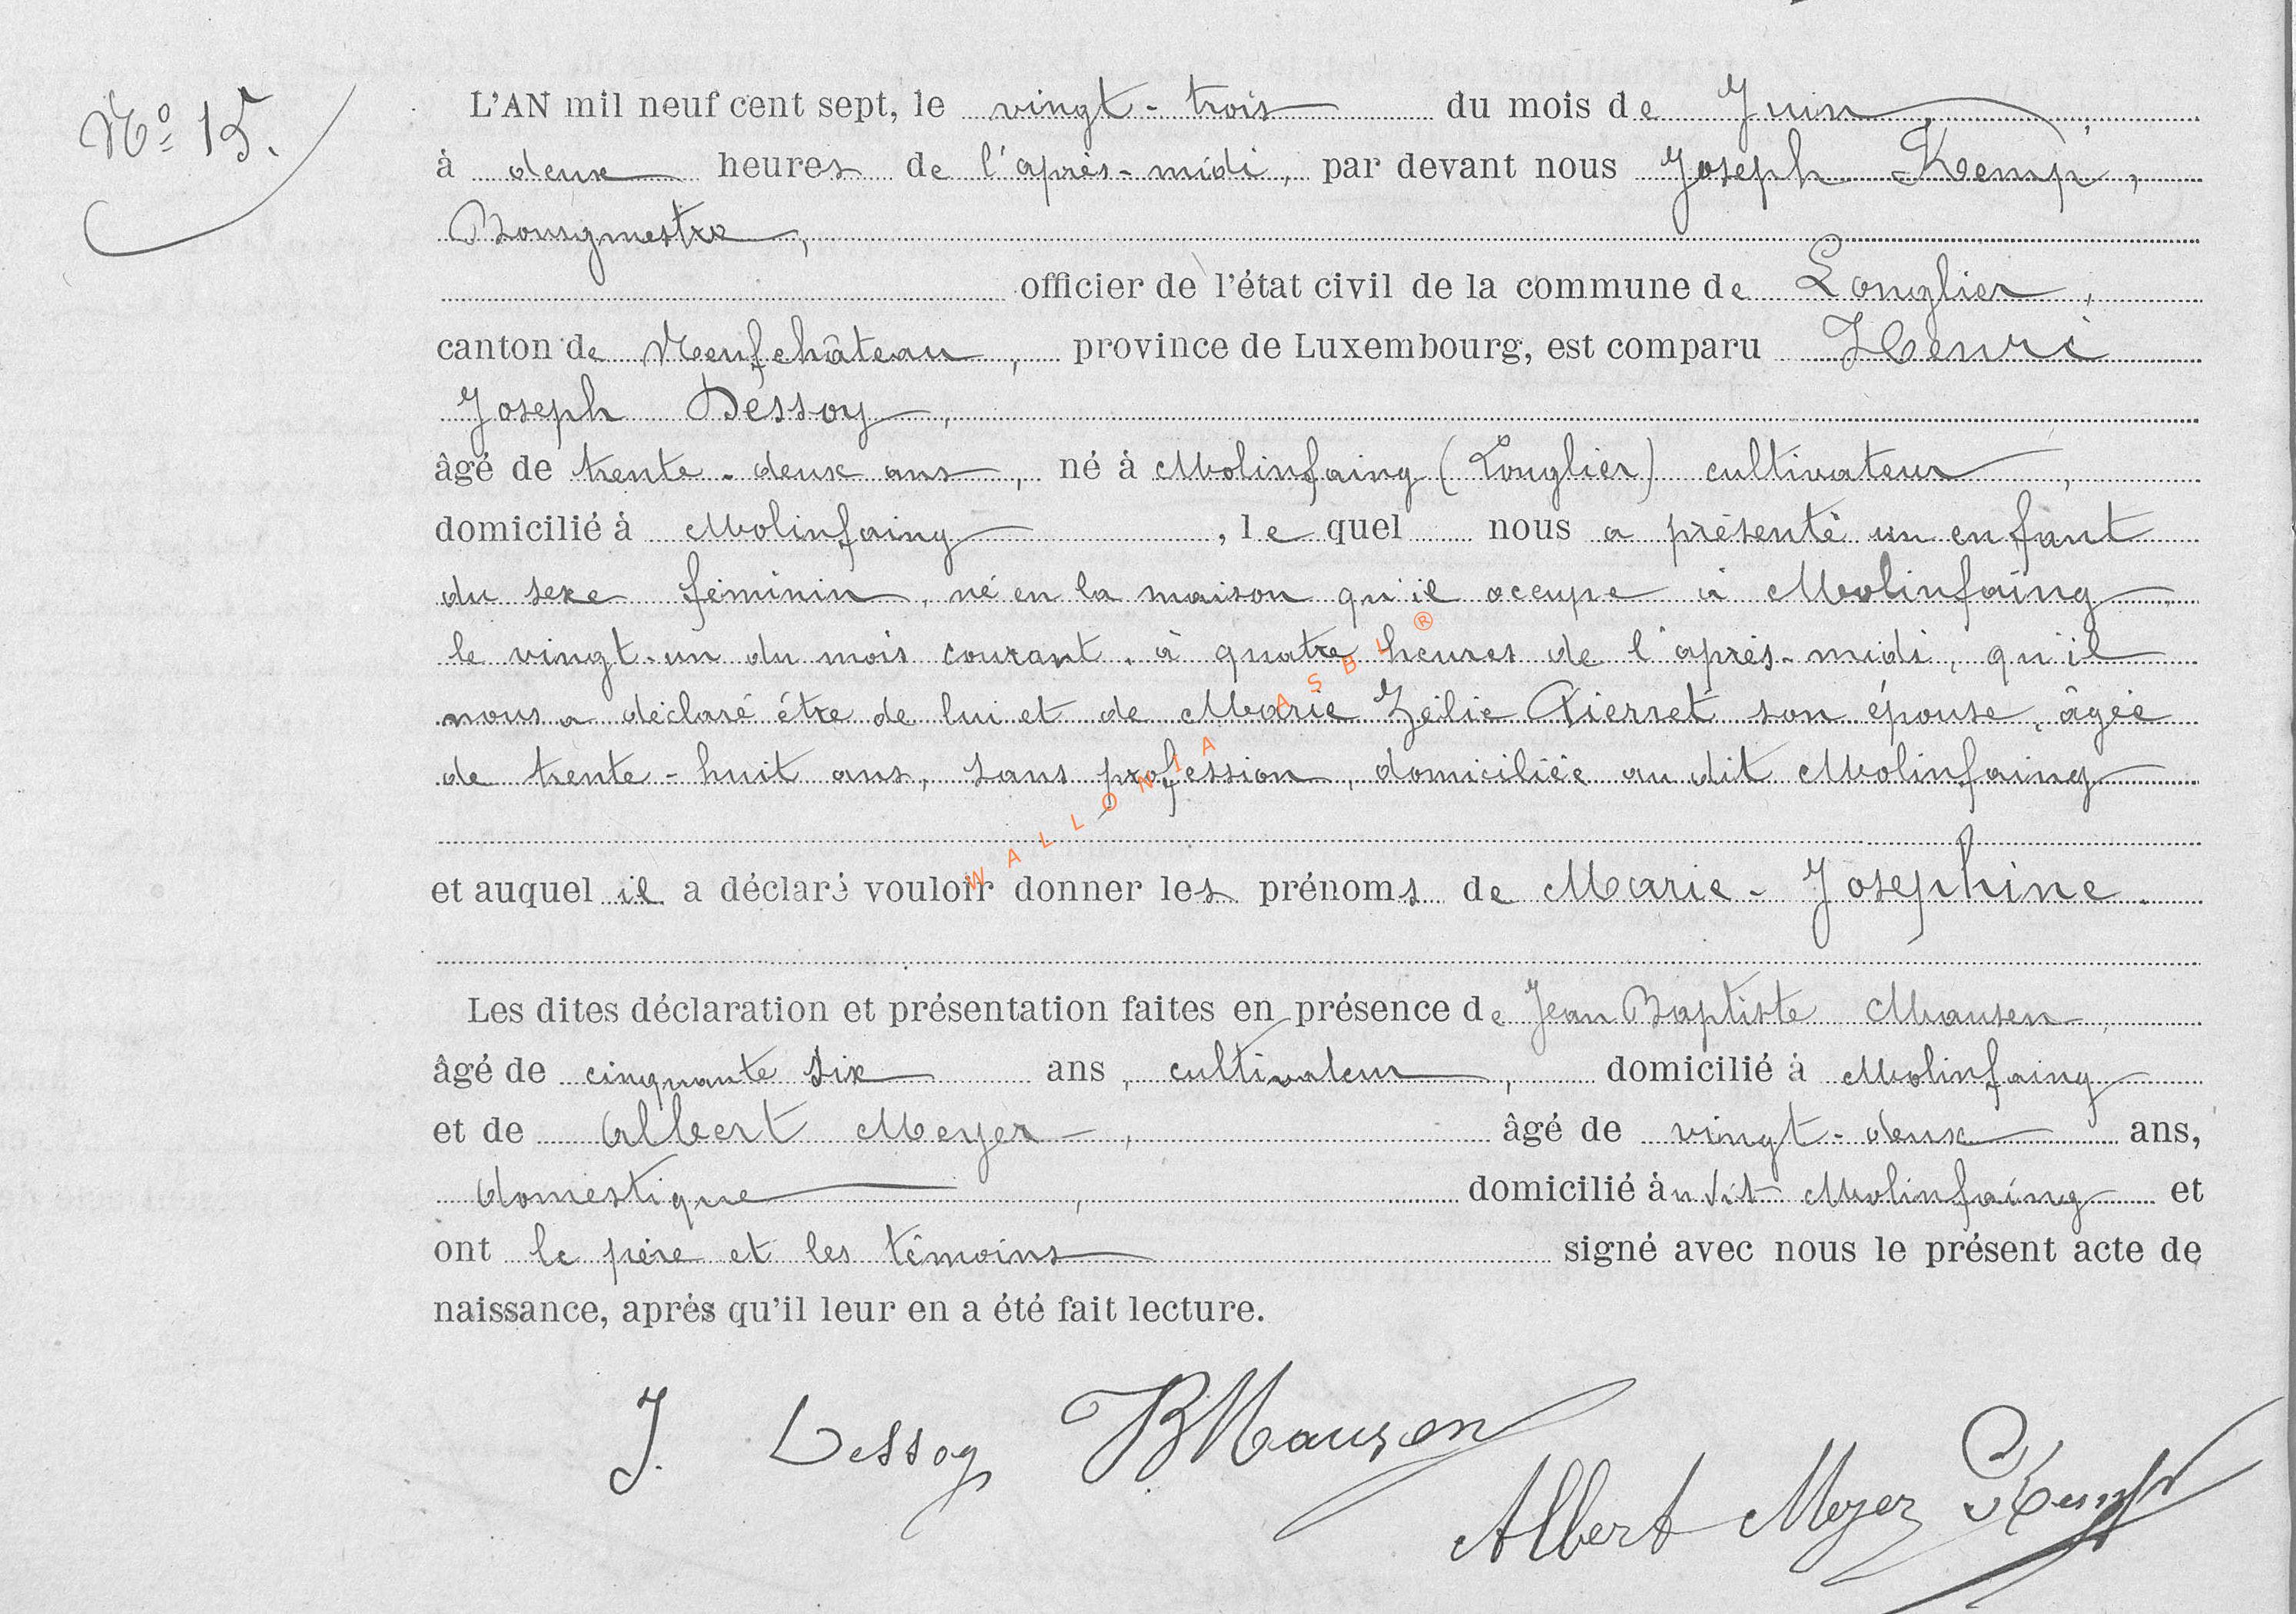 Nº 15.
L'AN mil neuf cent sept, le vingt-trois du mois de Juin
à deux heures de l'après-midi, par devant nous Joseph Kemp,
Bourgmestre,
officier de l'état civil de la commune de Longlier,
canton de Neufchâteau, province de Luxembourg, est comparu Henri
Joseph Dessoy,
âgé de trente-deux ans, né à Molinfaing (Longlier) cultivateur,
domicilié à Molinfaing, lequel nous a présenté un enfant
du sexe féminin, né en la maison qu'il occupe à Molinfaing
le vingt-un du mois courant, à quatre heures de l'après-midi, qu'il
nous a déclaré être de lui et de Marie Zélie Pierret son épouse, âgée
de trente-huit ans, sans profession, domiciliée au dit Molinfaing
et auquel il a déclaré vouloir donner les prénoms de Marie-Josephine.
Les dites déclaration et présentation faites en présence de Jean Baptiste Mausen,
âgé de cinquante six ans, cultivateur, domicilié à Molinfaing
et de Albert Meyer, âgé de vingt-deux ans,
domestique, domicilié au dit Molinfaing et
ont le père et les témoins signé avec nous le présent acte de
naissance, après qu'il leur en a été fait lecture.
J. Dessoy JBMausen
Albert Meyer Kemp
WALLONIA ASBL ®